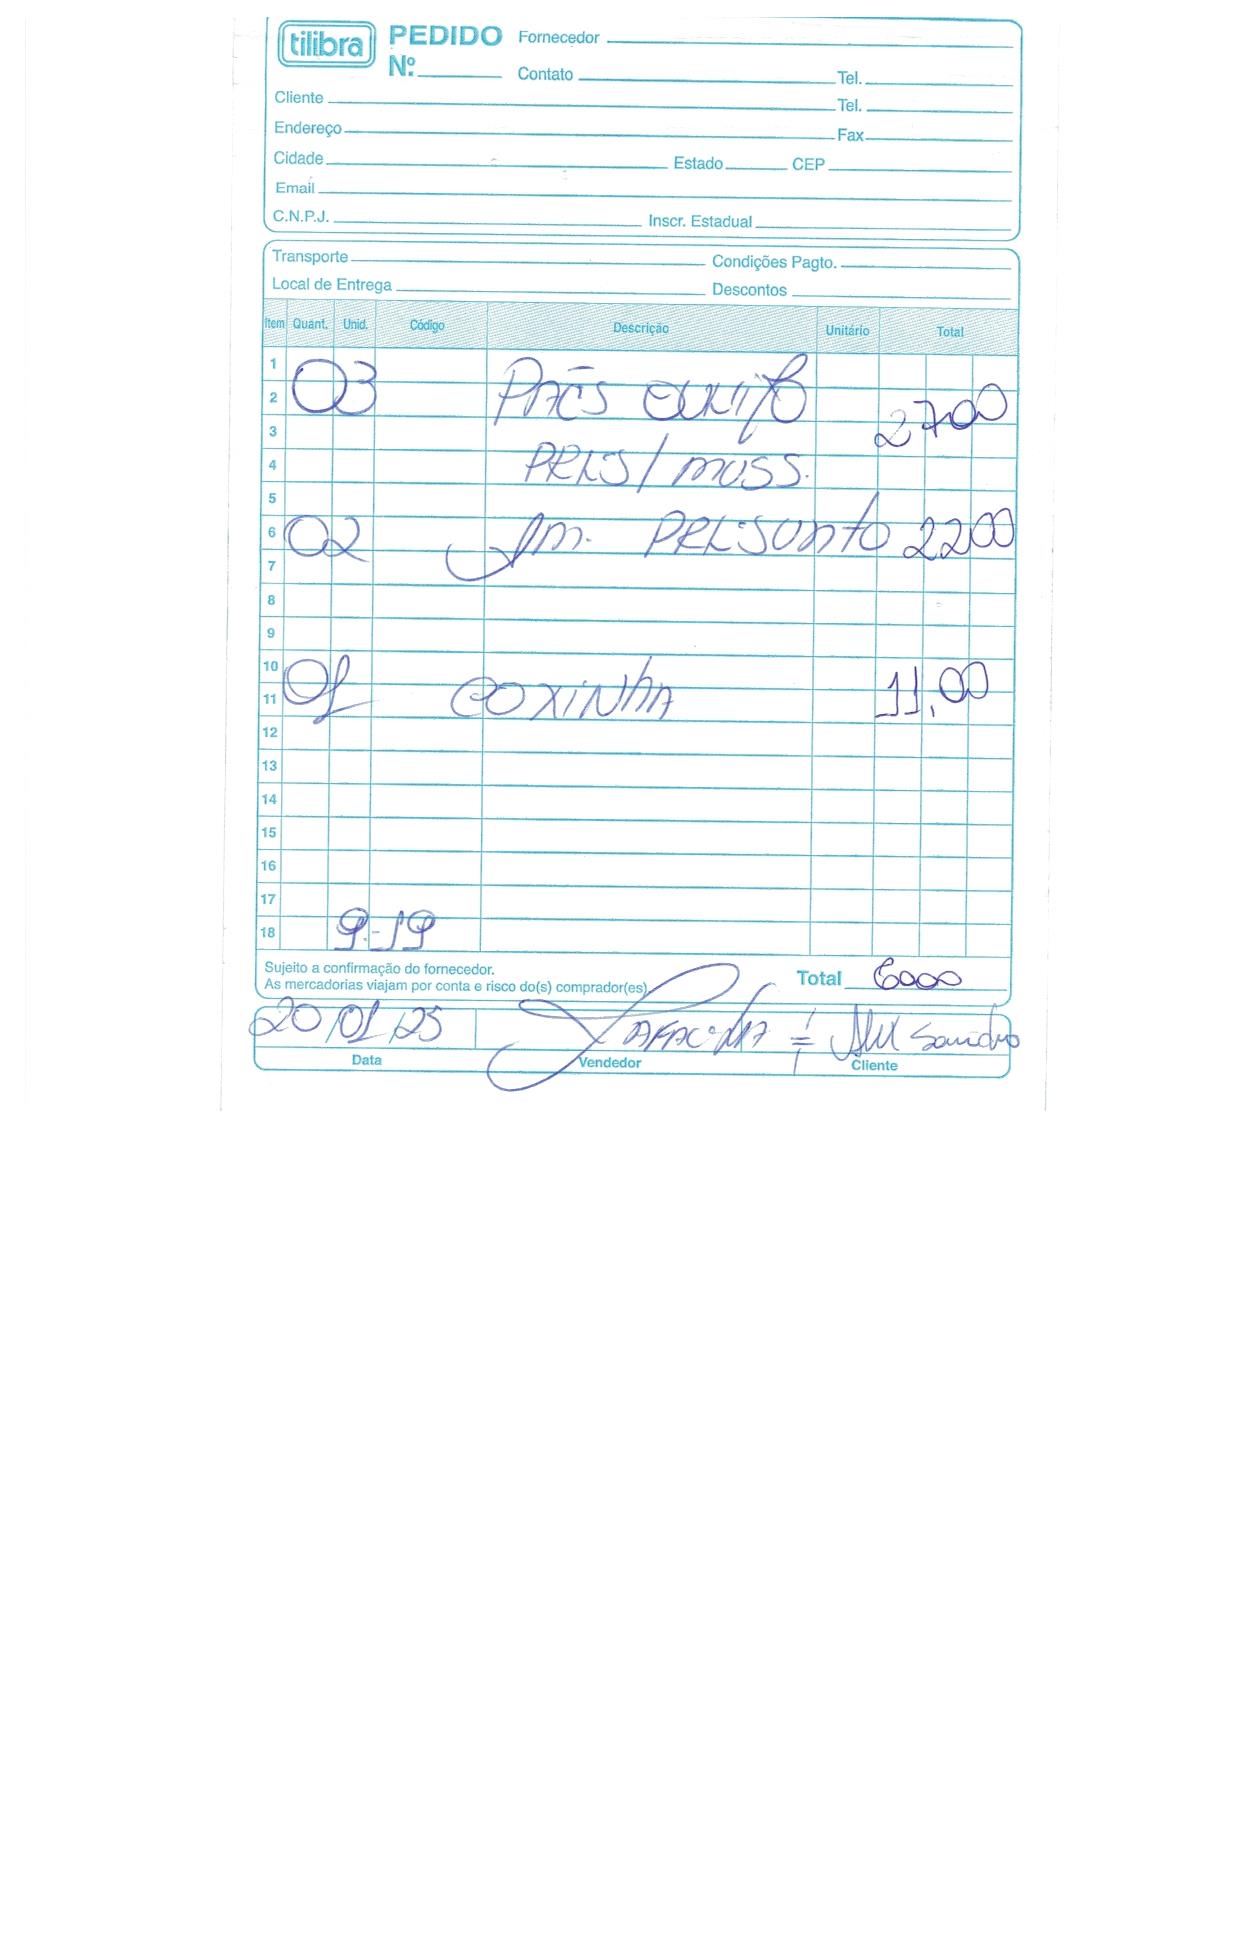 tilibra PEDIDO Fornecedor
Nº. Contato Tel.
Cliente Tel.
Endereço Fax
Cidade Estado CEP
Email
C.N.P.J. Inscr. Estadual
Transporte Condições Pagto.
Local de Entrega Descontos
Item Quant. Unid. Código Descrição Unitário Total
1
2 03 PÃES 2700
3
4 PRES/ MUSS.
5
6 02 PRESUNTO 2200
7
8
9
10
11 01 COXINHA 11,00
12
13
14
15
16
17
18 9-19
Sujeito a confirmação do fornecedor.
As mercadorias viajam por conta e risco do(s) comprador(es) Total 6000
20/01/25 Sandro
Data Vendedor Cliente